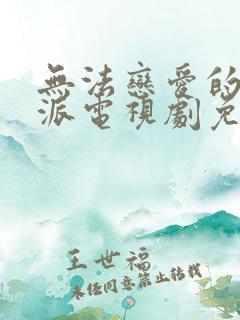 無法戀愛的
派電視劇免
王世福
未經同意禁止轉載